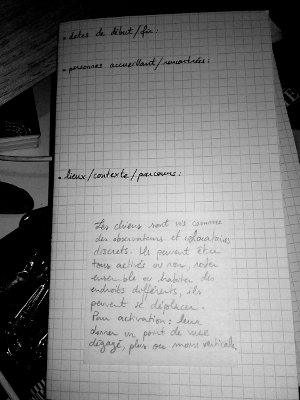 • dates de début/fin :
• personnes accueillant/rencontrées :
• lieux/contexte/parcours :
Les chiens sont vus comme
des observateurs et colocataires
discrets. Ils peuvent être
tous activés ou non, rester
ensemble ou habiter des
endroits différents, ils
peuvent se déplacer.
Pour activation : leur
donner un point de vue
dégagé, plus ou moins vertical.